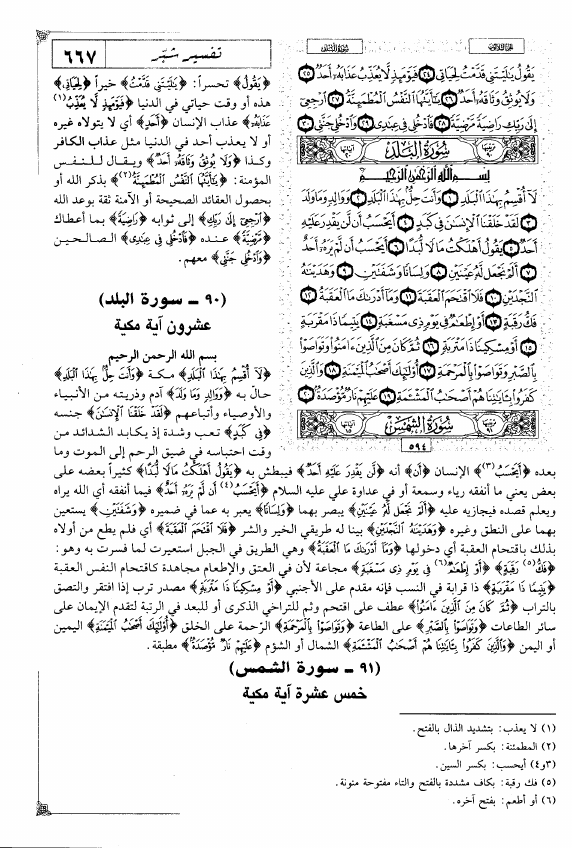 تفسير شبّر
٦٦٧
الجزء الثلاثون
سورة البلد
يَقُولُ يَٰلَيْتَنِي قَدَّمْتُ لِحَيَاتِي ٢٤ فَيَوْمَئِذٍ لَّا يُعَذِّبُ عَذَابَهُ أَحَدٌ ٢٥
وَلَا يُوثِقُ وَثَاقَهُ أَحَدٌ ٢٦ يَٰأَيَّتُهَا النَّفْسُ الْمُطْمَئِنَّةُ ٢٧ ارْجِعِي
إِلَىٰ رَبِّكِ رَاضِيَةً مَّرْضِيَّةً ٢٨ فَادْخُلِي فِي عِبَادِي ٢٩ وَادْخُلِي جَنَّتِي ٣٠
سُورَةُ الْبَلَدِ
بِسْمِ اللَّهِ الرَّحْمَٰنِ الرَّحِيمِ
لَا أُقْسِمُ بِهَٰذَا الْبَلَدِ ١ وَأَنتَ حِلٌّ بِهَٰذَا الْبَلَدِ ٢ وَوَالِدٍ وَمَا وَلَدَ
٣ لَقَدْ خَلَقْنَا الْإِنسَٰنَ فِي كَبَدٍ ٤ أَيَحْسَبُ أَن لَّن يَقْدِرَ عَلَيْهِ
أَحَدٌ ٥ يَقُولُ أَهْلَكْتُ مَالًا لُّبَدًا ٦ أَيَحْسَبُ أَن لَّمْ يَرَهُ أَحَدٌ
٧ أَلَمْ نَجْعَل لَّهُ عَيْنَيْنِ ٨ وَلِسَانًا وَشَفَتَيْنِ ٩ وَهَدَيْنَٰهُ
النَّجْدَيْنِ ١٠ فَلَا اقْتَحَمَ الْعَقَبَةَ ١١ وَمَا أَدْرَىٰكَ مَا الْعَقَبَةُ ١٢
فَكُّ رَقَبَةٍ ١٣ أَوْ إِطْعَٰمٌ فِي يَوْمٍ ذِي مَسْغَبَةٍ ١٤ يَتِيمًا ذَا مَقْرَبَةٍ
١٥ أَوْ مِسْكِينًا ذَا مَتْرَبَةٍ ١٦ ثُمَّ كَانَ مِنَ الَّذِينَ ءَامَنُوا وَتَوَاصَوْا
بِالصَّبْرِ وَتَوَاصَوْا بِالْمَرْحَمَةِ ١٧ أُولَٰئِكَ أَصْحَٰبُ الْمَيْمَنَةِ ١٨ وَالَّذِينَ
كَفَرُوا بِـَٔايَٰتِنَا هُمْ أَصْحَٰبُ الْمَشْـَٔمَةِ ١٩ عَلَيْهِمْ نَارٌ مُّؤْصَدَةٌ ٢٠
سُورَةُ الشَّمْسِ
٥٩٤
﴿يَقُولُ﴾ تحسراً: ﴿يَٰلَيْتَنِي قَدَّمْتُ﴾ خيراً ﴿لِحَيَاتِي﴾
هذه أو وقت حياتي في الدنيا ﴿فَيَوْمَئِذٍ لَّا يُعَذِّبُ(١)
عَذَابَهُ﴾ عذاب الإنسان ﴿أَحَدٌ﴾ أي لا يتولاه غيره
أو لا يعذب أحد في الدنيا مثل عذاب الكافر
وكذا ﴿وَلَا يُوثِقُ وَثَاقَهُ أَحَدٌ﴾ ويقال للنفس
المؤمنة: ﴿يَٰأَيَّتُهَا النَّفْسُ الْمُطْمَئِنَّةُ(٢)﴾ بذكر الله أو
بحصول العقائد الصحيحة أو الآمنة ثقة بوعد الله
﴿ارْجِعِي إِلَىٰ رَبِّكِ﴾ إلى ثوابه ﴿رَاضِيَةً﴾ بما أعطاك
﴿مَّرْضِيَّةً﴾ عنده ﴿فَادْخُلِي فِي عِبَادِي﴾ الصالحين
﴿وَادْخُلِي جَنَّتِي﴾ معهم.
(٩٠ ـ سورة البلد)
عشرون آية مكية
بسم الله الرحمن الرحيم
﴿لَا أُقْسِمُ بِهَٰذَا الْبَلَدِ﴾ مكة ﴿وَأَنتَ حِلٌّ بِهَٰذَا الْبَلَدِ﴾
حالّ به ﴿وَوَالِدٍ وَمَا وَلَدَ﴾ آدم وذريته من الأنبياء
والأوصياء وأتباعهم ﴿لَقَدْ خَلَقْنَا الْإِنسَٰنَ﴾ جنسه
﴿فِي كَبَدٍ﴾ تعب وشدة إذ يكابد الشدائد من
وقت احتباسه في ضيق الرحم إلى الموت وما
بعده ﴿أَيَحْسَبُ(٣)﴾ الإنسان ﴿أَن﴾ أنه ﴿لَّن يَقْدِرَ عَلَيْهِ أَحَدٌ﴾ فيبطش به ﴿يَقُولُ أَهْلَكْتُ مَالًا لُّبَدًا﴾ كثيراً بعضه على
بعض يعني ما أنفقه رياء وسمعة أو في عداوة علي عليه السلام ﴿أَيَحْسَبُ(٤) أَن لَّمْ يَرَهُ أَحَدٌ﴾ فيما أنفقه أي الله يراه
ويعلم قصده فيجازيه عليه ﴿أَلَمْ نَجْعَل لَّهُ عَيْنَيْنِ﴾ يبصر بهما ﴿وَلِسَانًا﴾ يعبر به عما في ضميره ﴿وَشَفَتَيْنِ﴾ يستعين
بهما على النطق وغيره ﴿وَهَدَيْنَٰهُ النَّجْدَيْنِ﴾ بينا له طريقي الخير والشر ﴿فَلَا اقْتَحَمَ الْعَقَبَةَ﴾ أي فلم يطع من أولاه
بذلك باقتحام العقبة أي دخولها ﴿وَمَا أَدْرَىٰكَ مَا الْعَقَبَةُ﴾ وهي الطريق في الجبل استعيرت لما فسرت به وهو:
﴿فَكُّ(٥) رَقَبَةٍ﴾ ﴿أَوْ إِطْعَٰمٌ(٦) فِي يَوْمٍ ذِي مَسْغَبَةٍ﴾ مجاعة لأن في العتق والإطعام مجاهدة كاقتحام النفس العقبة
﴿يَتِيمًا ذَا مَقْرَبَةٍ﴾ ذا قرابة في النسب فإنه مقدم على الأجنبي ﴿أَوْ مِسْكِينًا ذَا مَتْرَبَةٍ﴾ مصدر ترب إذا افتقر والتصق
بالتراب ﴿ثُمَّ كَانَ مِنَ الَّذِينَ ءَامَنُوا﴾ عطف على اقتحم وثم للتراخي الذكرى أو للبعد في الرتبة لتقدم الإيمان على
سائر الطاعات ﴿وَتَوَاصَوْا بِالصَّبْرِ﴾ على الطاعة ﴿وَتَوَاصَوْا بِالْمَرْحَمَةِ﴾ الرحمة على الخلق ﴿أُولَٰئِكَ أَصْحَٰبُ الْمَيْمَنَةِ﴾ اليمين
أو اليمن ﴿وَالَّذِينَ كَفَرُوا بِـَٔايَٰتِنَا هُمْ أَصْحَٰبُ الْمَشْـَٔمَةِ﴾ الشمال أو الشؤم ﴿عَلَيْهِمْ نَارٌ مُّؤْصَدَةٌ﴾ مطبقة.
(٩١ ـ سورة الشمس)
خمس عشرة آية مكية
(١) لا يعذب: بتشديد الذال بالفتح.
(٢) المطمئنة: بكسر آخرها.
(٣و٤) أيحسب: بكسر السين.
(٥) فك رقبة: بكاف مشددة بالفتح والتاء مفتوحة منونة.
(٦) أو أطعم: بفتح آخره.